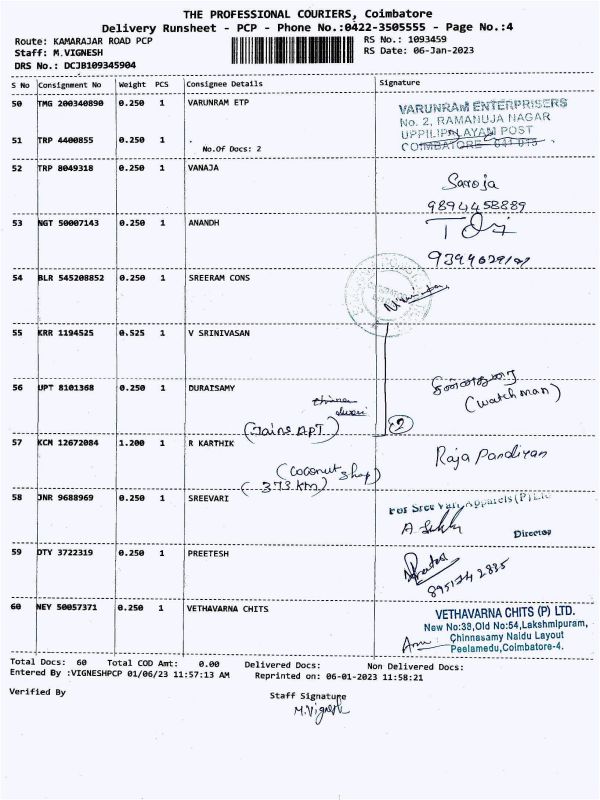 THE PROFESSIONAL COURIERS, Coimbatore
Delivery Runsheet - PCP - Phone No.:0422-3505555 - Page No.:4
Route: KAMARAJAR ROAD PCP
RS No.: 1093459
Staff: M.VIGNESH
RS Date: 06-Jan-2023
DRS No.: DCJB109345904
S No Consignment No Weight PCS Consignee Details Signature
50 TMG 200340890 0.250 1 VARUNRAM ETP
VARUNRAM ENTERPRISERS
No. 2, RAMANUJA NAGAR
UPPILIPALAYAM POST
COIMBATORE - 641 015.
51 TRP 4400855 0.250 1 .
No.Of Docs: 2
52 TRP 8049318 0.250 1 VANAJA
Saroja
9894458889
53 NGT 50007143 0.250 1 ANANDH
54 BLR 545208852 0.250 1 SREERAM CONS
55 KRR 1194525 0.525 1 V SRINIVASAN
56 UPT 8101368 0.250 1 DURAISAMY
(watchman)
(Jains APT)
2
57 KCM 12672084 1.200 1 R KARTHIK
Raja Pandiyan
(coconut shop)
(373 km)
58 JNR 9688969 0.250 1 SREEVARI
For Sree Vari Apparels (P) Ltd
Director
59 DTY 3722319 0.250 1 PREETESH
60 NEY 50057371 0.250 1 VETHAVARNA CHITS
VETHAVARNA CHITS (P) LTD.
New No:38,Old No:54,Lakshmipuram,
Chinnasamy Naidu Layout
Peelamedu,Coimbatore-4.
Total Docs: 60 Total COD Amt: 0.00 Delivered Docs: Non Delivered Docs:
Entered By :VIGNESHPCP 01/06/23 11:57:13 AM Reprinted on: 06-01-2023 11:58:21
Verified By
Staff Signature
M.Vignesh